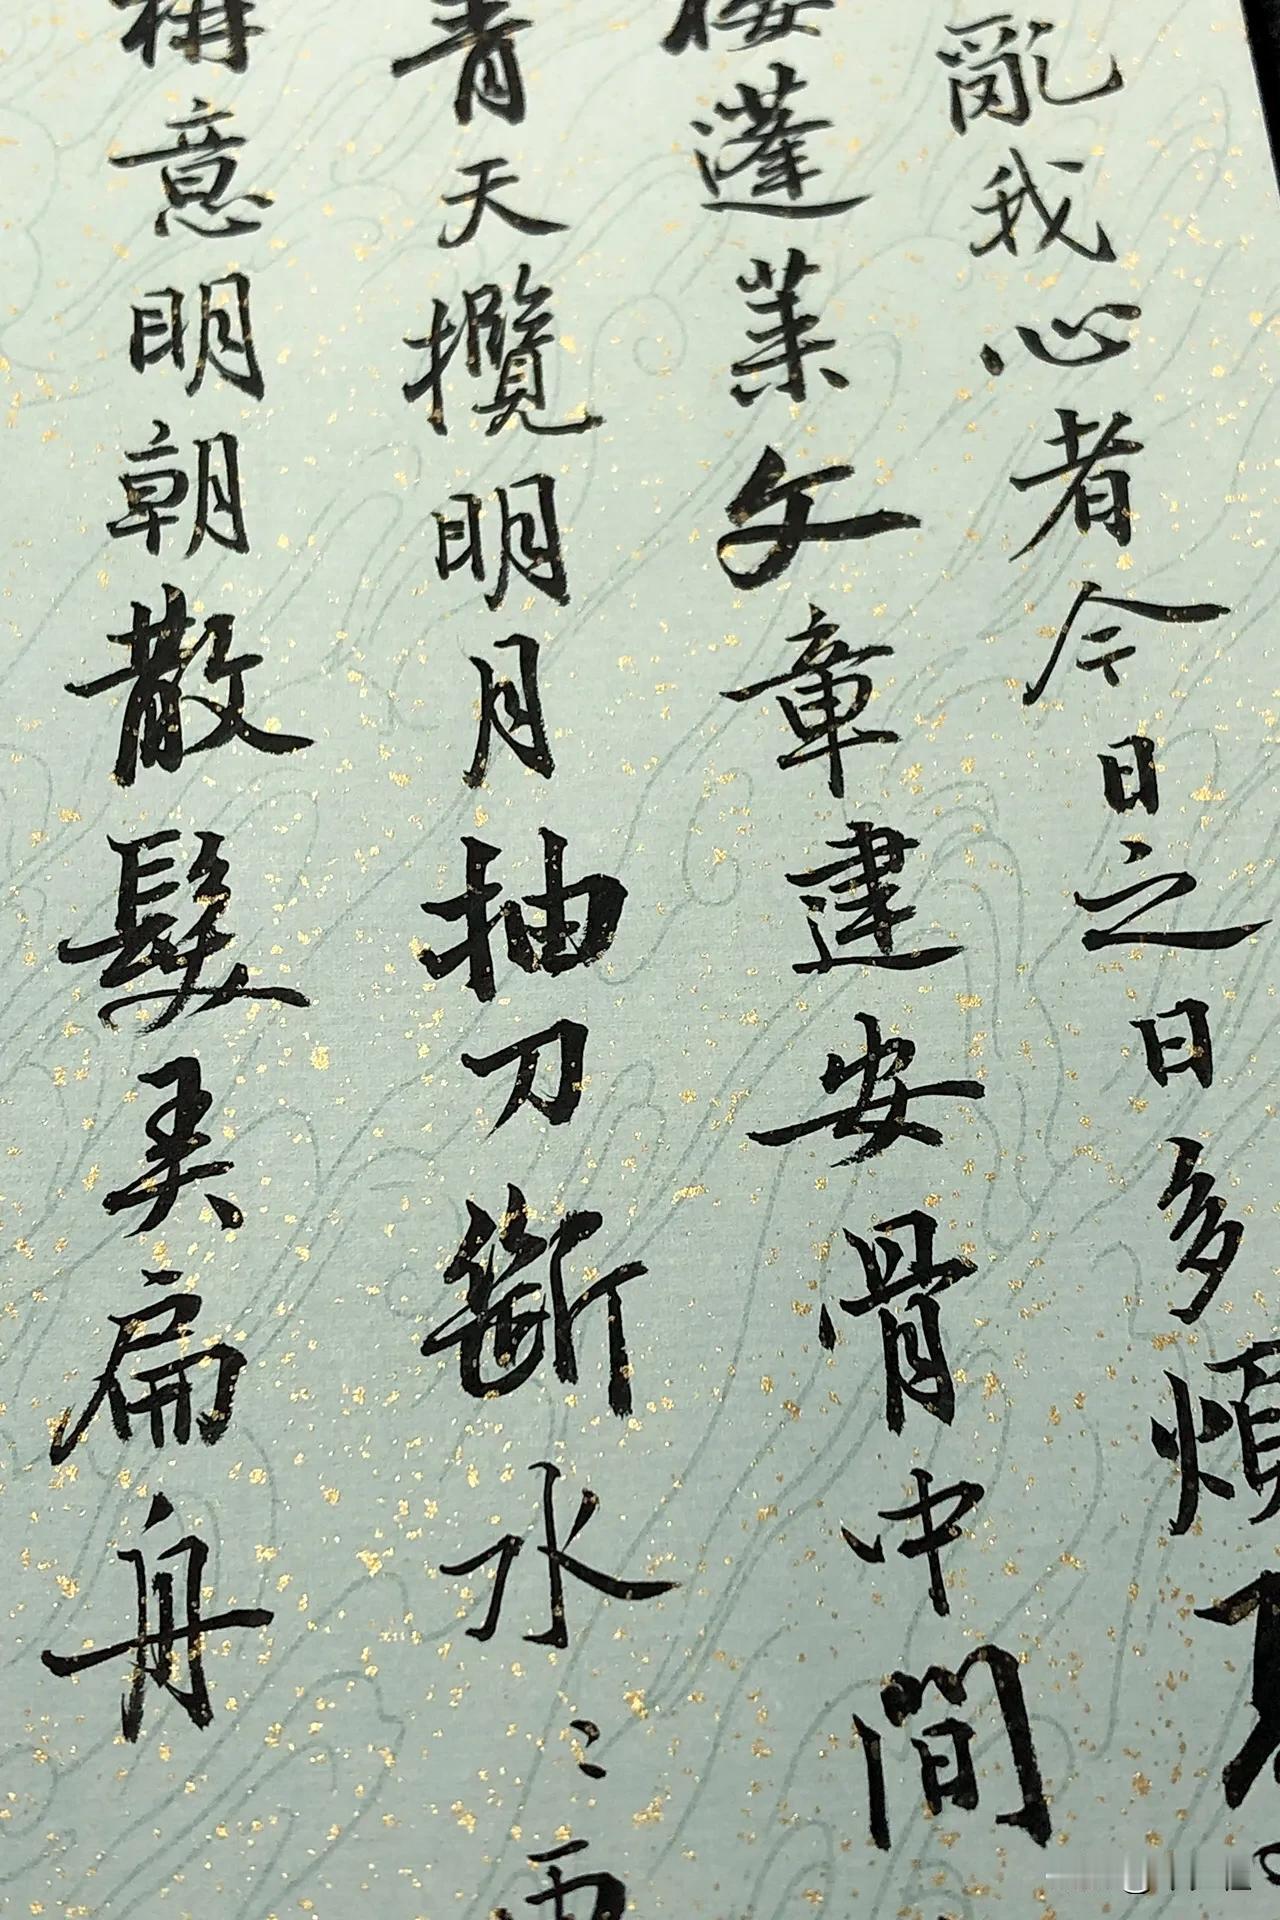 亂我心者今日之日多煩
樓蓬萊文章建安骨中間
青天攬明月抽刀斷水〻
稱意明朝散髮弄扁舟